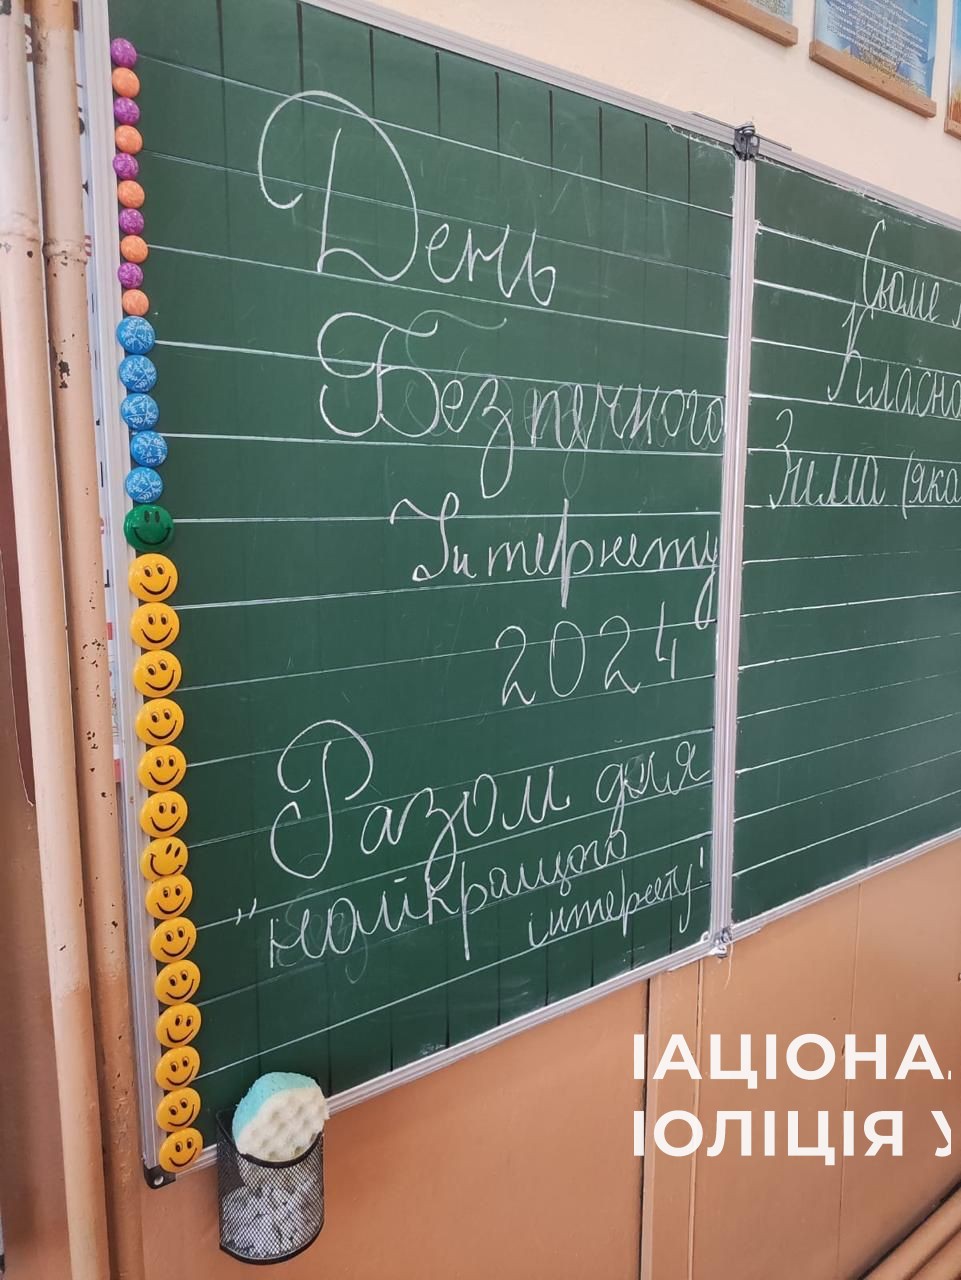 День
Безпечного
Інтернету
2024
Разом для
"найкращого
інтернету"
Зима (яка
ІАЦІОНА
ІОЛІЦІЯ У